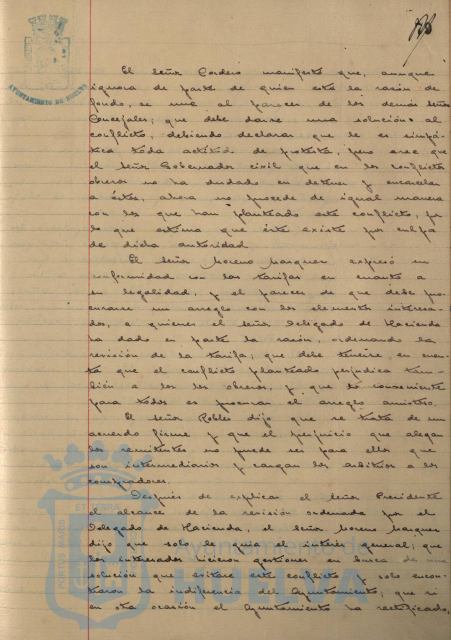 178
AYUNTAMIENTO DE HUELVA
El Señor Cordero manifestó que, aunque
ignora de parte de quien está la razón de
fondo, se une al parecer de los demás Señores
Concejales; que debe darse una solución al
conflicto, debiendo declarar que le es simpá-
tica toda actitud de protesta, pero cree que
el Señor Gobernador civil que en los conflictos
obreros no ha dudado en detener y encarcelar
a éstos, ahora no procede de igual manera
con los que han planteado este conflicto, por
lo que estima que éste existe por culpa
de dicha autoridad.
El Señor Moreno Marquez expresó su
conformidad con las tarifas en cuanto a
su legalidad, y el parecer de que debe pro-
curarse un arreglo con los elementos interesa-
dos, a quienes el Señor Delegado de Hacienda
ha dado en parte la razón, ordenando la
revisión de la tarifa; que debe tenerse en cuen-
ta que el conflicto planteado perjudica tam-
bién a los obreros, y que lo conveniente
para todos es procurar el arreglo amistoso.
El Señor Robles dijo que se trata de un
acuerdo firme y que el perjuicio que alegan
los remitentes no puede ser para ellos que
son intermediarios y cargan los arbitrios a los
compradores.
Después de explicar el Señor Presidente
el alcance de la revisión ordenada por el
Delegado de Hacienda, el Señor Moreno Marquez
dijo que solo le guía el interés general; que
los interesados hicieron gestiones en busca de una
solución que evitase este conflicto y solo encon-
traron la indiferencia del Ayuntamiento; que si
en otra ocasión el Ayuntamiento ha rectificado,
Ayuntamiento de
HUELVA